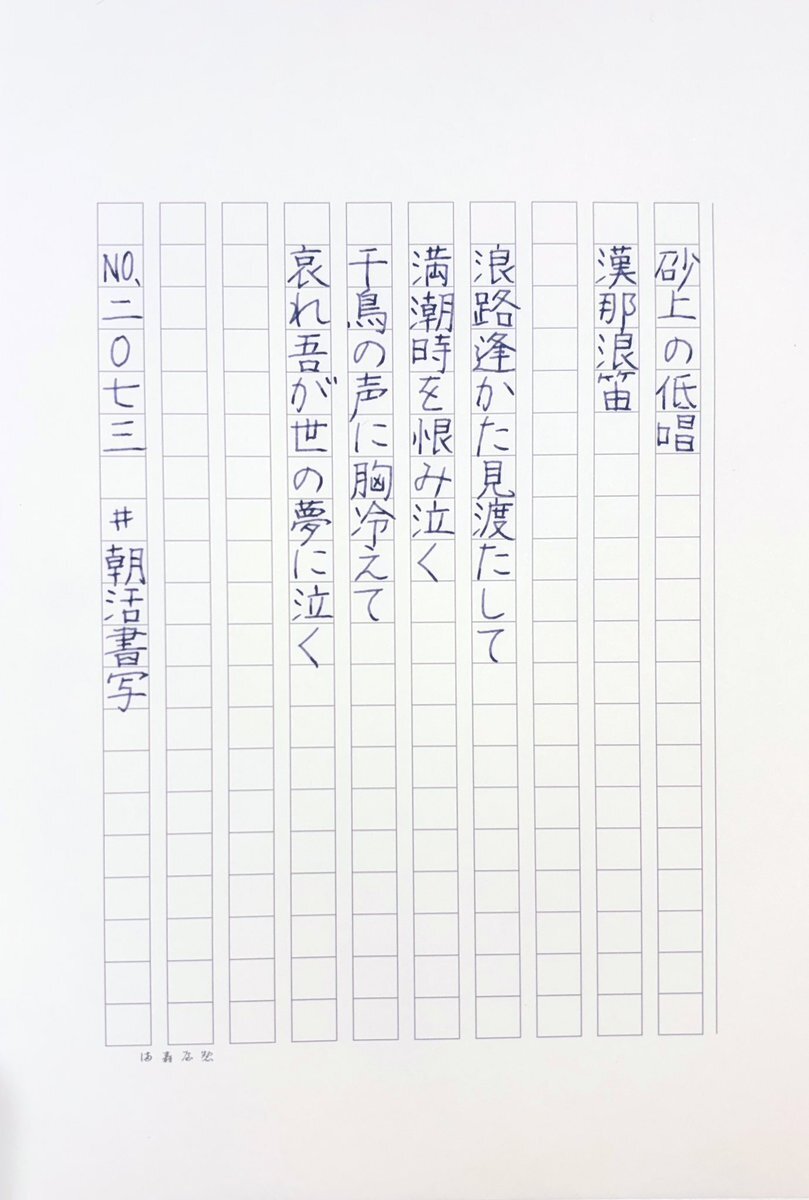 砂上の低唱
漢那浪笛
浪路逢かた見渡たして
満潮時を恨み泣く
千鳥の声に胸冷えて
哀れ吾が世の夢に泣く
NO、二〇七三　#朝活書写